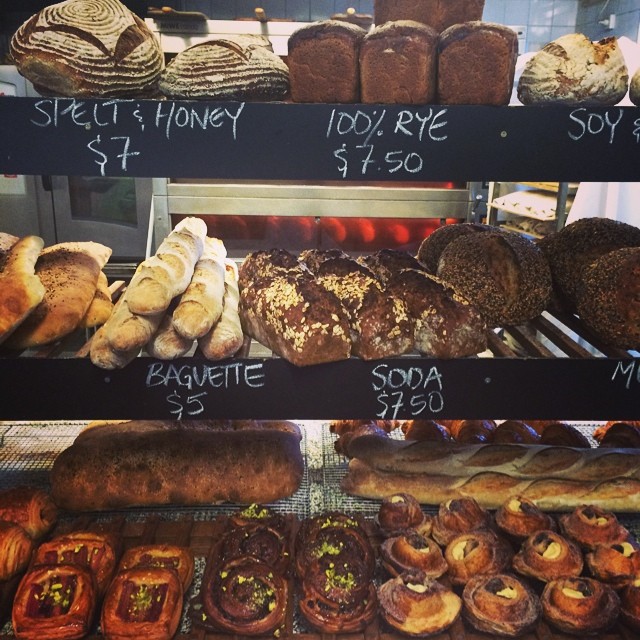 SPELT & HONEY
$7
100% RYE
$7.50
SOY &
BAGUETTE
$5
SODA
$7.50